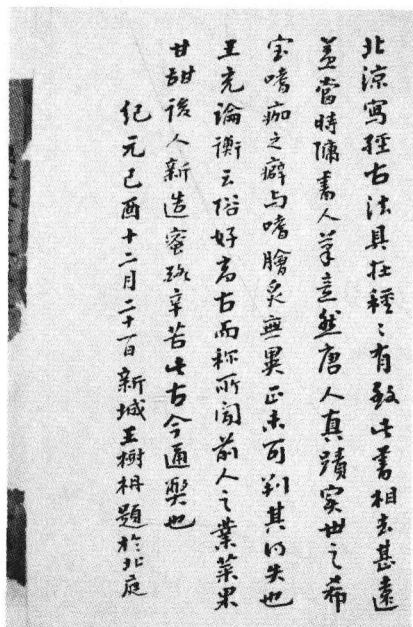 北涼寫經古法具在種々有致此書相去甚遠
蓋當時傭書人筆意然唐人真蹟實世之希
宝嗜痂之癖与嗜膾炙無異正未可判其得失也
王充論衡云俗好高古而称所聞前人之業菜果
甘甜後人新造蜜酪辛苦此古今通弊也
紀元己酉十二月二十一日新城王樹枏題於北庭